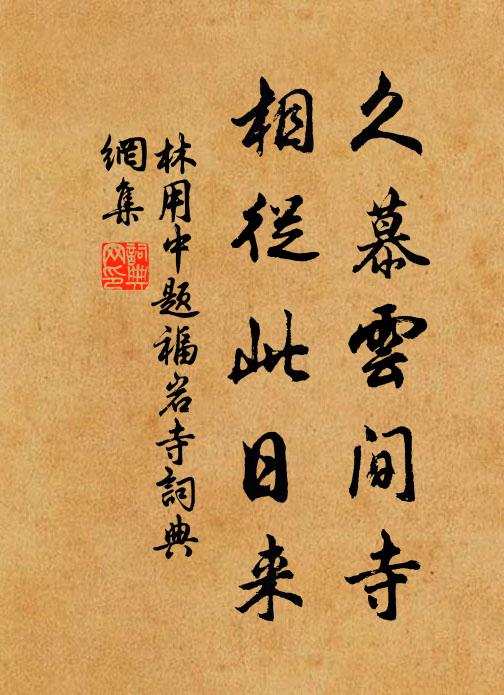 久慕雲間寺
相從此日来
林用中题福岩寺詞典
網集
詞典
网印